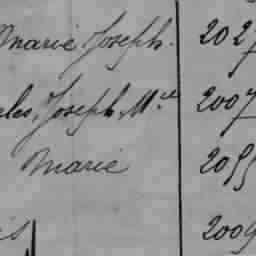 Marie Joseph. 2027
les, Joseph, M.el 2007
Marie 2055
is 2009